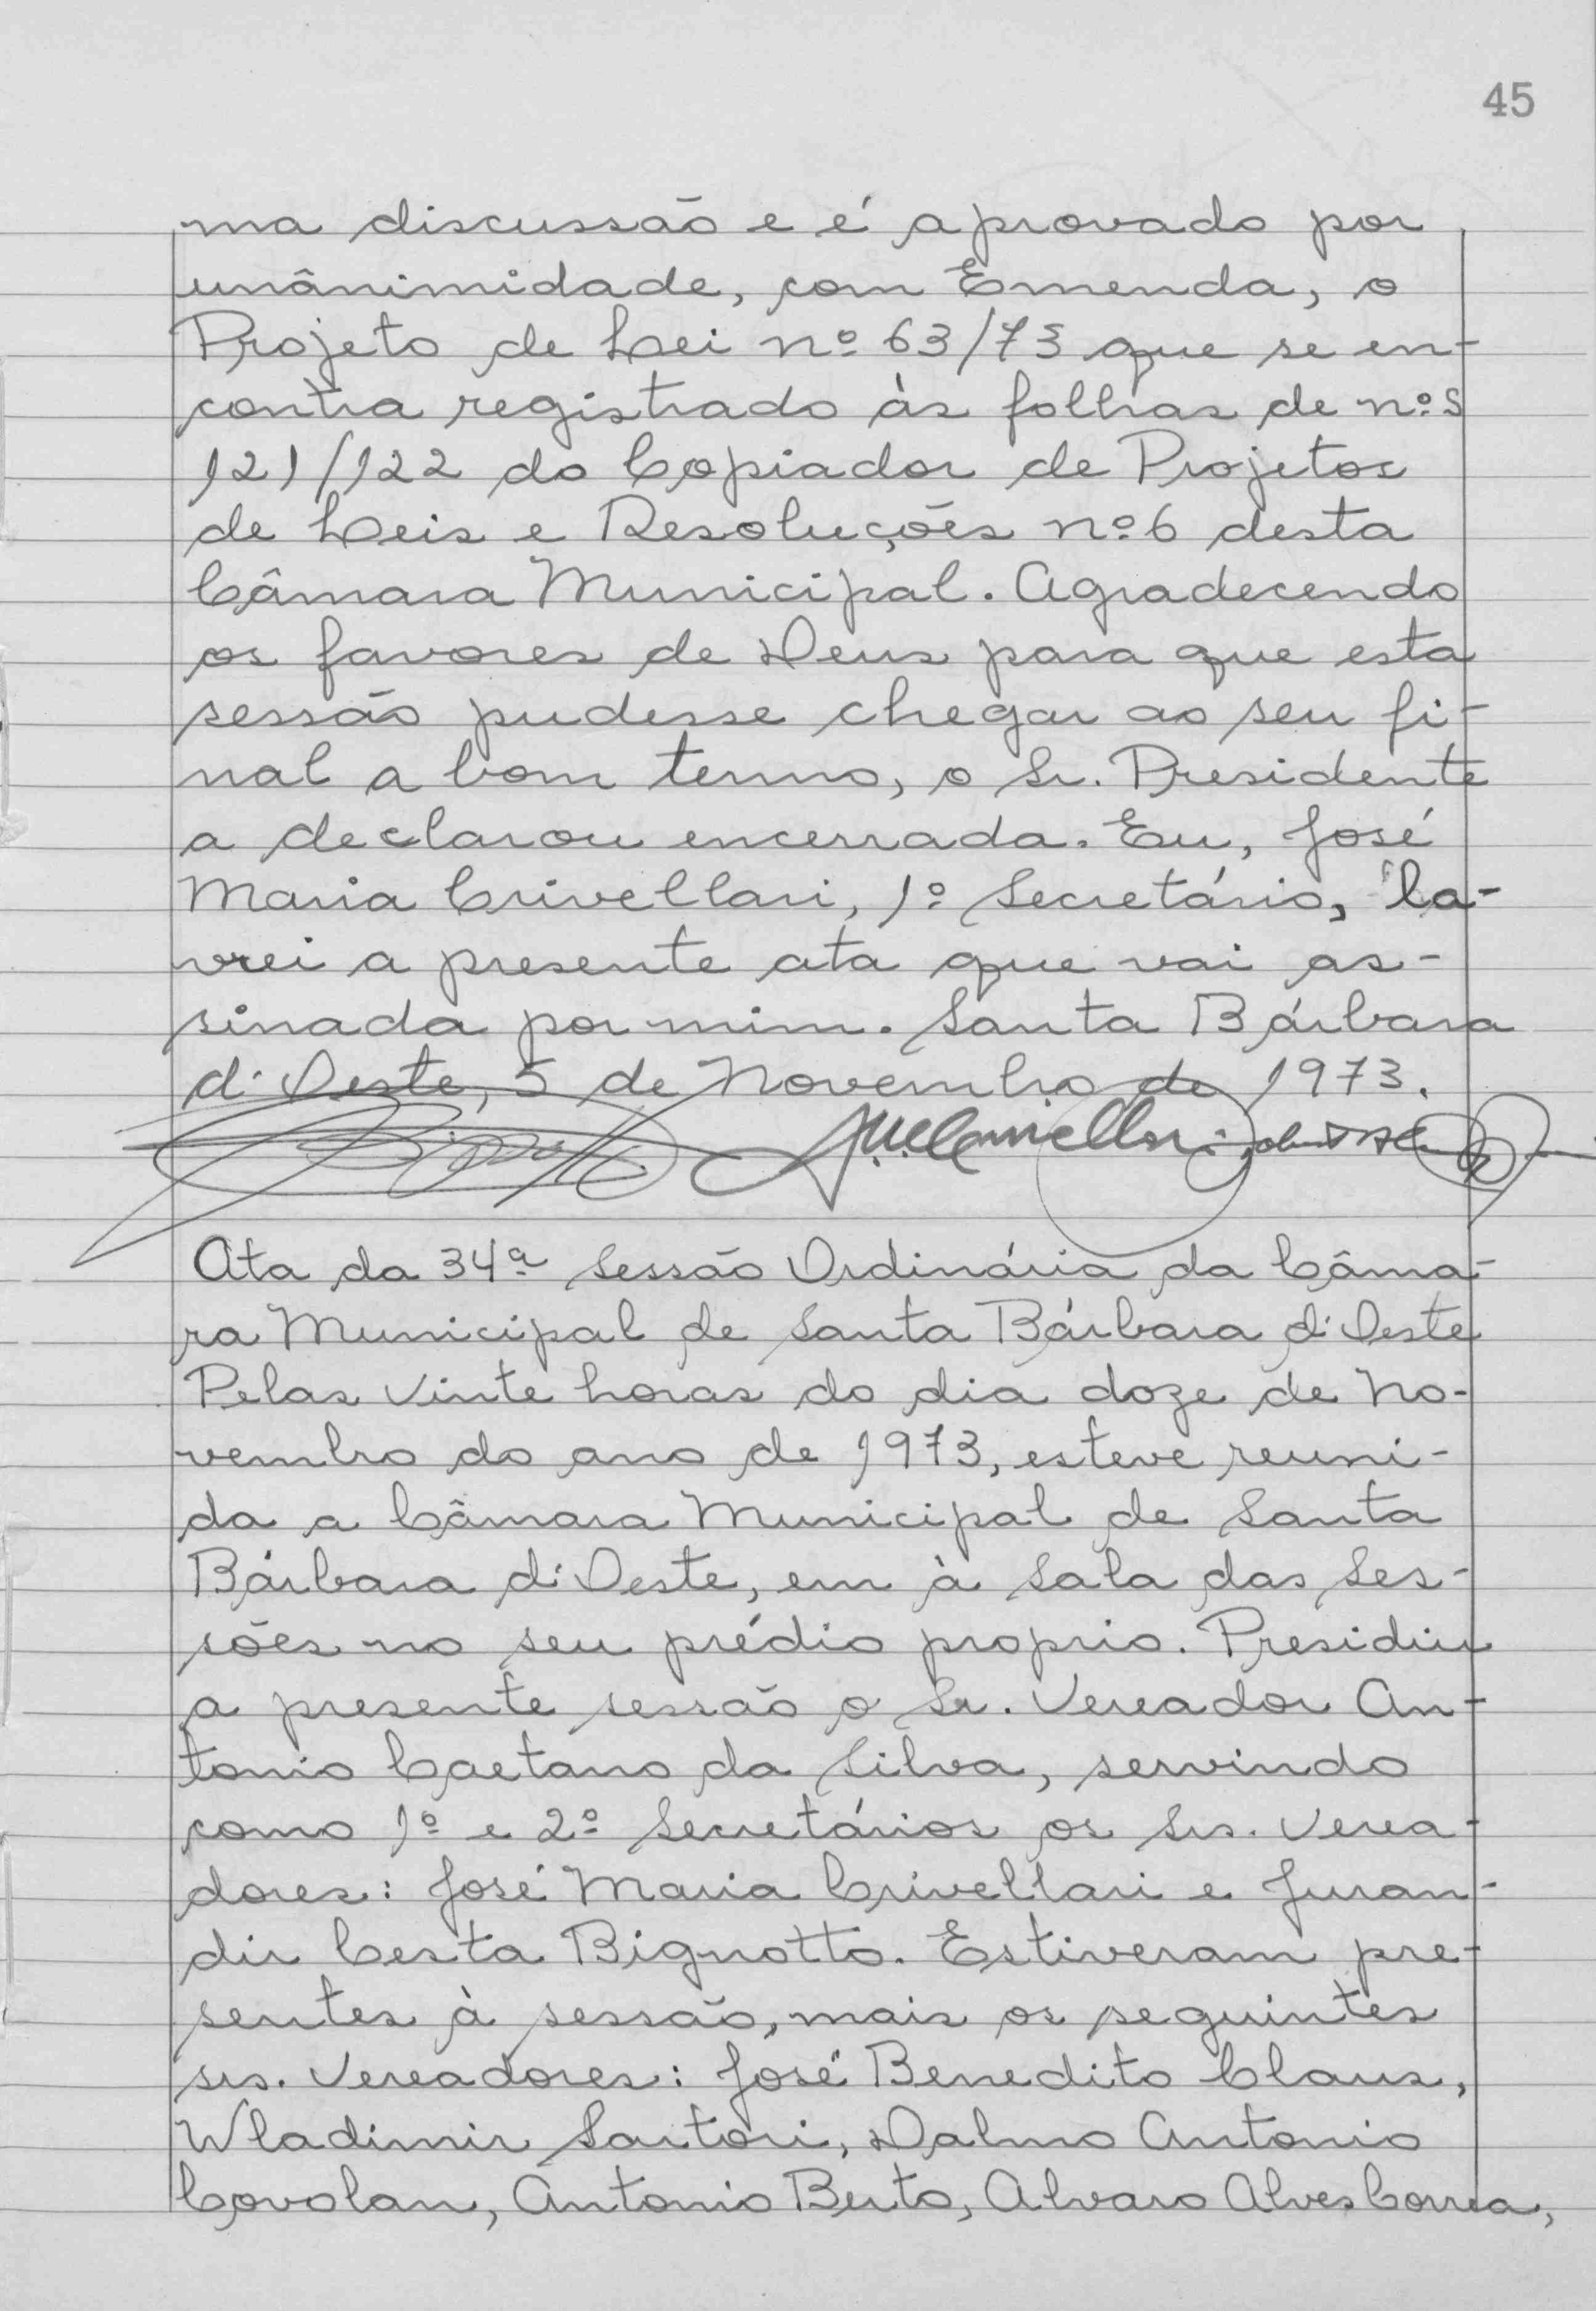 45
ma discussão e é aprovado por
unânimidade, com Emenda, o
Projeto de Lei nº 63/73 que se en-
contra registrado às folhas de nºs
121/122 do Copiador de Projetos
de Leis e Resoluções nº 6 desta
Câmara Municipal. Agradecendo
os favores de Deus para que esta
sessão pudesse chegar ao seu fi-
nal a bom termo, o Sr. Presidente
a declarou encerrada. Eu, José
Maria Crivellari, 1º Secretário, la-
vrei a presente ata que vai as-
sinada por mim. Santa Bárbara
d'Oeste, 5 de Novembro de 1973.
Ata da 34ª Sessão Ordinária da Câma-
ra Municipal de Santa Bárbara d'Oeste
Pelas Vinte horas do dia doze de No-
vembro do ano de 1973, esteve reuni-
da a Câmara Municipal de Santa
Bárbara d'Oeste, em à Sala das Ses-
sões no seu prédio proprio. Presidiu
a presente sessão o Sr. Vereador An-
tonio Caetano da Silva, servindo
como 1º e 2º Secretários os Srs. Verea-
dores: José Maria Crivellari e Juran-
dir Cesta Bignotto. Estiveram pre-
sentes à sessão, mais os seguintes
srs. Vereadores: José Benedito Claus,
Wladimir Sartori, Dalmo Antonio
Covolan, Antonio Berto, Alvaro Alves Correa,